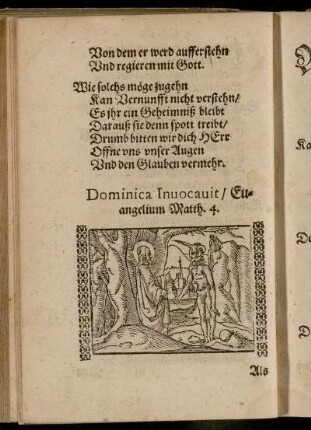 Von dem er werd aufferstehn
Vnd regieren mit Gott.
Wie solchs möge zugehn
Kan Vernunfft nicht verstehn/
Es jhr ein Geheimniß bleibt
Darauß sie denn spott treibt/
Drumb bitten wir dich HErr
Offne vns vnser Augen
Vnd den Glauben vermehr.
Dominica Inuocauit / Eu-
angelium Matth. 4.
Als